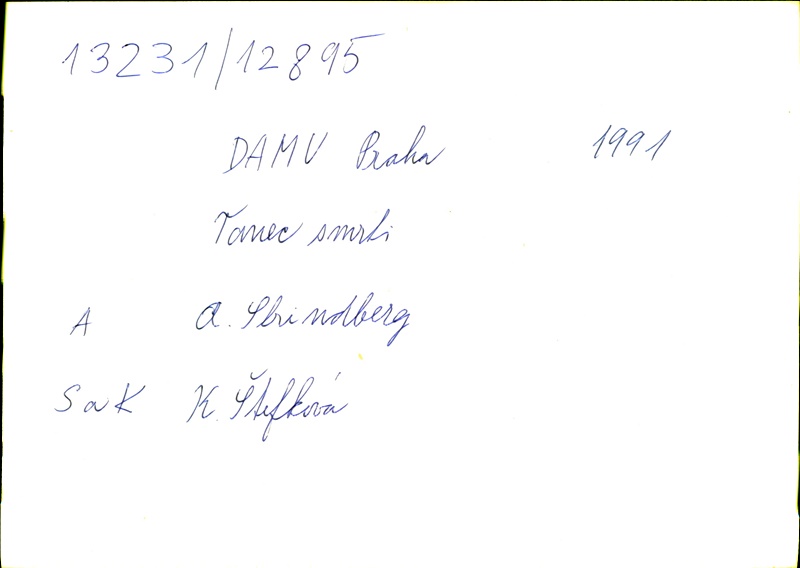 13231/12895
DAMU Praha 1991
Tanec smrti
A A. Strindberg
S a K K. Štefková